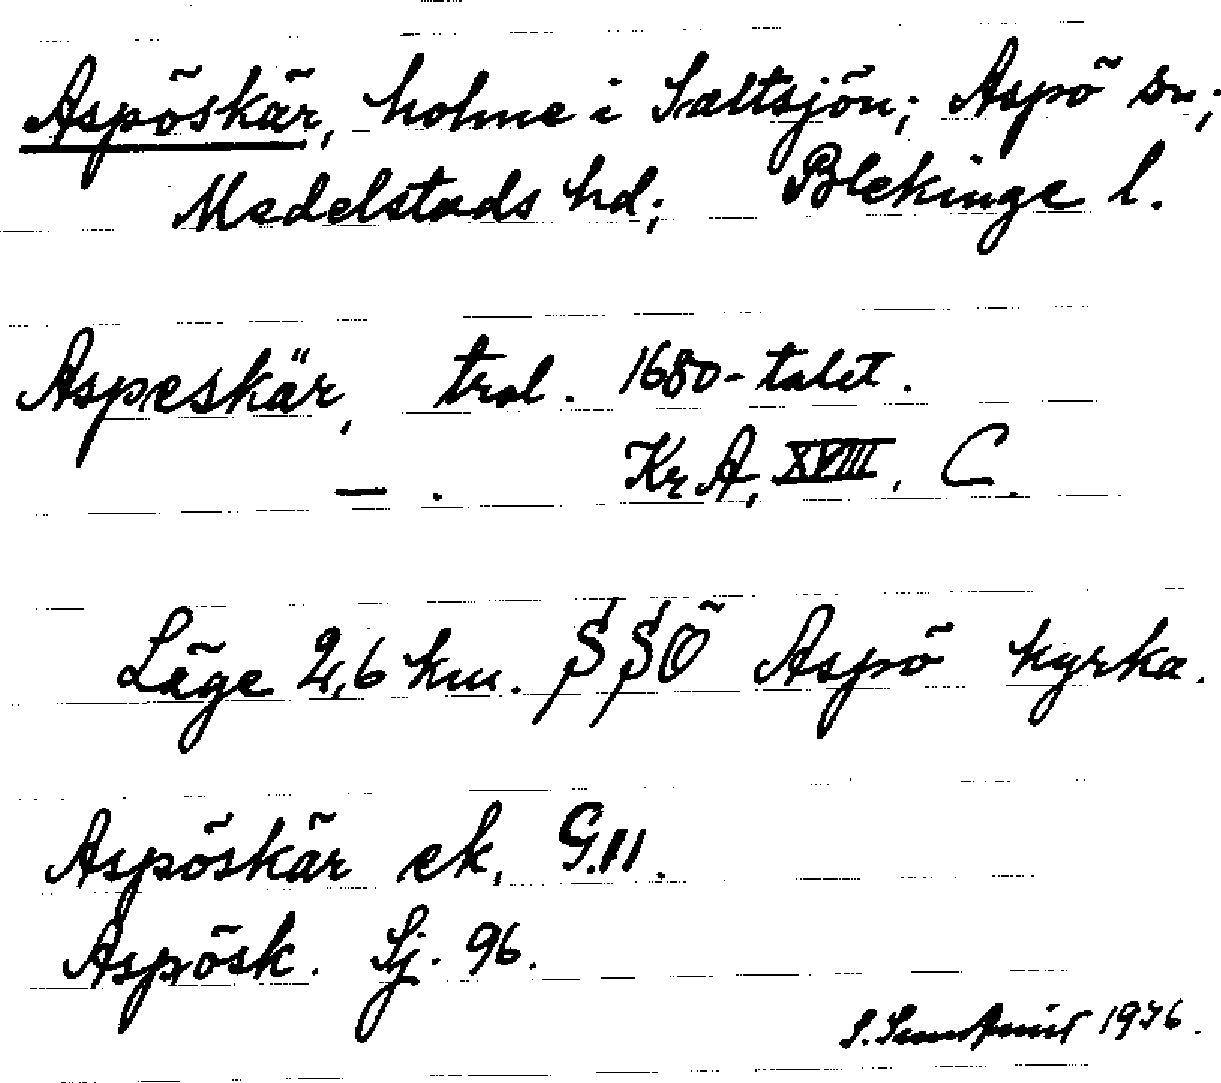 Aspöskär, holme i Saltsjön; Aspö sn;
Medelstads hd; Blekinge l.
Aspeskär, trol. 1680-talet.
— . KrA, XVIII, C.
Läge 2,6 km. SSÖ Aspö kyrka.
Aspöskär ek, G.11.
Aspösk. Sj. 96.
S. 1976.